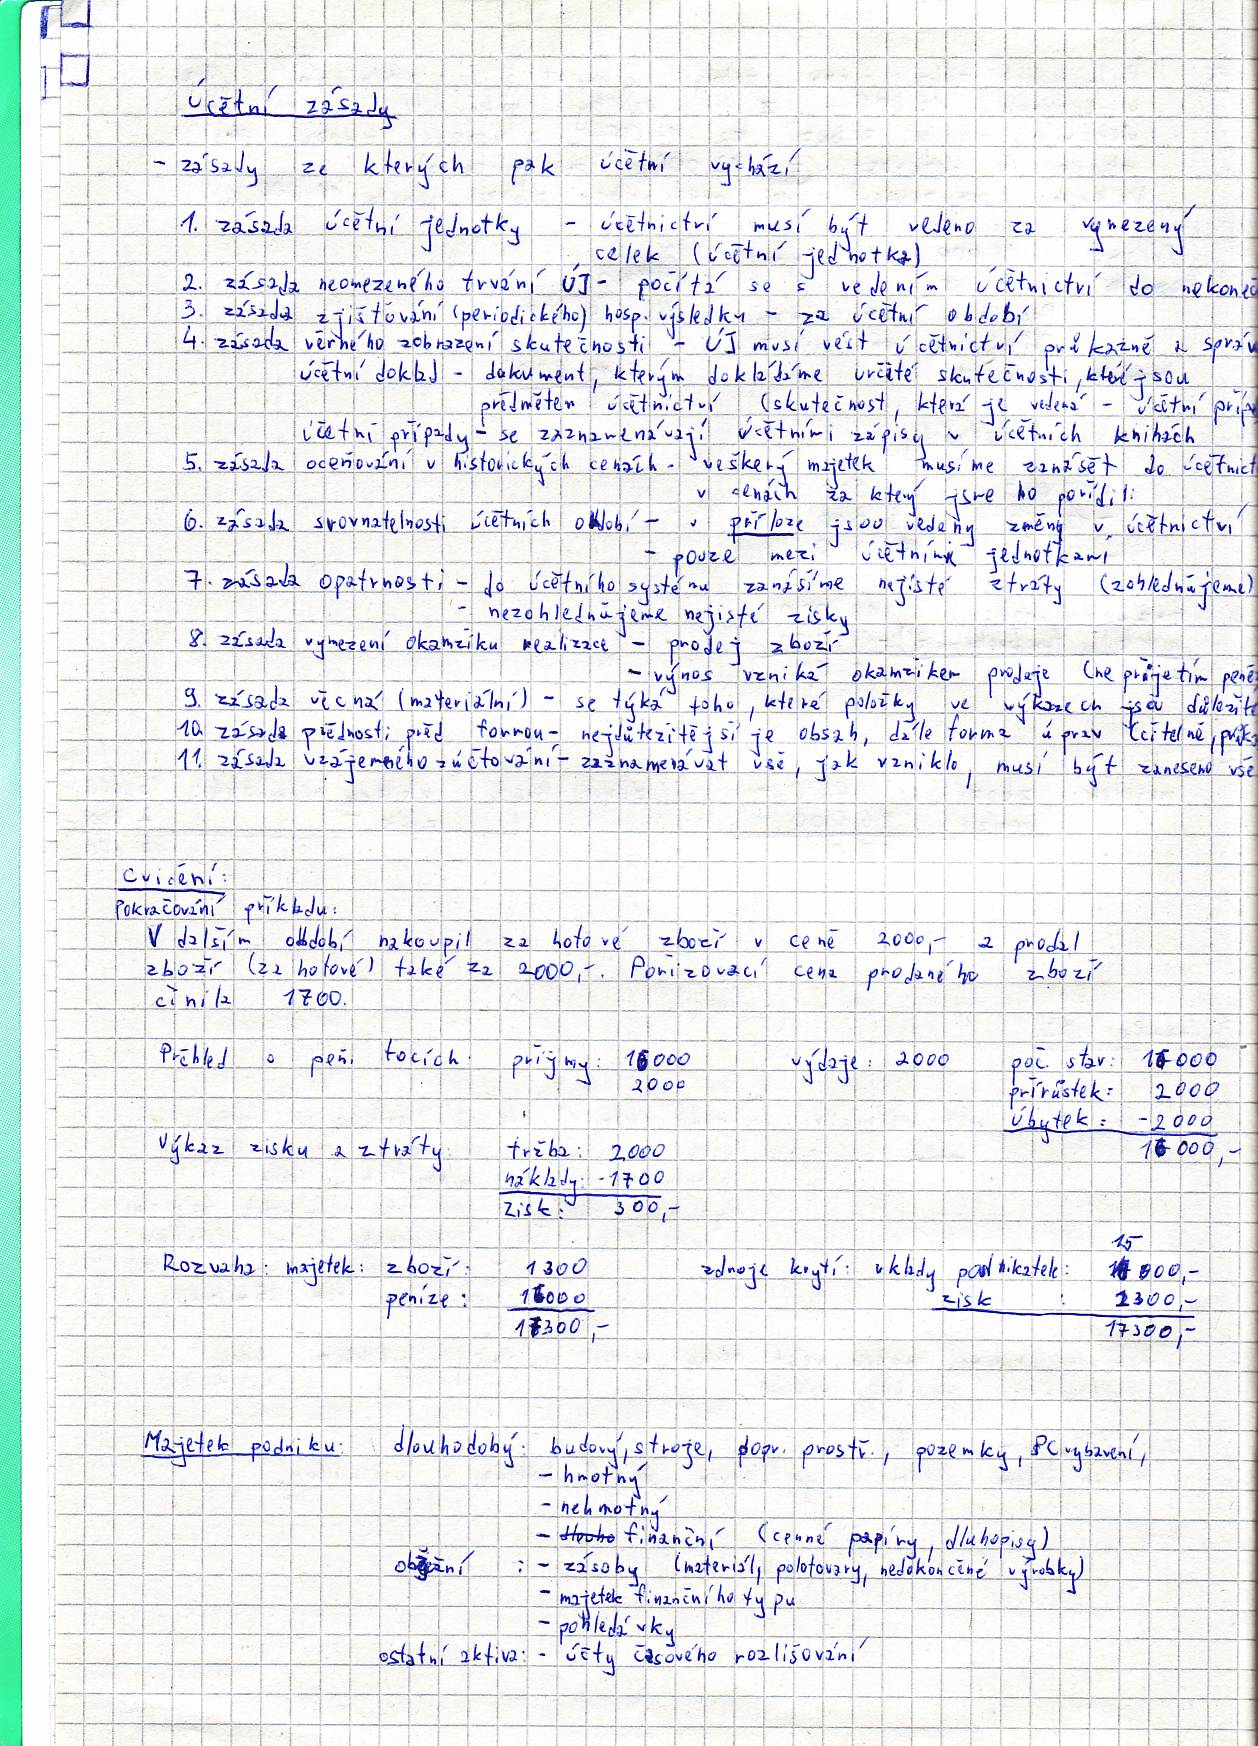 Účetní zásady
- zásady ze kterých pak účetní vychází
1. zásada účetní jednotky - účetnictví musí být vedeno za vymezený
celek (účetní jednotka)
2. zásada neomezeného trvání ÚJ - počítá se s vedením účetnictví do nekoneč
3. zásada zjišťování (periodického) hosp. výsledku - za účetní období
4. zásada věrného zobrazení skutečnosti - ÚJ musí vést účetnictví průkazně a správ
účetní doklad - dokument, kterým dokládáme určité skutečnosti, které jsou
předmětem účetnictví (skutečnost, která je vedená - účetní příp
účetní případy - se zaznamenávají účetními zápisy v účetních knihách
5. zásada oceňování v historických cenách - veškerý majetek musíme zanášet do účetnict
v cenách za který jsme ho pořídili
6. zásada srovnatelnosti účetních období - v příloze jsou vedeny změny v účetnictví
- pouze mezi účetními jednotkami
7. zásada opatrnosti - do účetního systému zanášíme nejisté ztráty (zohledňujeme)
- nezohledňujeme nejisté zisky
8. zásada vymezení okamžiku realizace - prodej zboží
- výnos vzniká okamžikem prodeje (ne přijetím peně
9. zásada věcná (materiální) - se týká toho, které položky ve výkazech jsou důležité
10. zásada přednosti před formou - nejdůležitější je obsah, dále forma úprav (čitelné, průka
11. zásada vzájemného zúčtování - zaznamenávat vše, jak vzniklo, musí být zaneseno vše
Cvičení:
Pokračování příkladu:
V dalším období nakoupil za hotové zboží v ceně 2000,- a prodal
zboží (za hotové) také za 2000,-. Pořizovací cena prodaného zboží
činila 1700.
Přehled o peň. tocích: příjmy: 16000 výdaje: 2000 poč. stav: 16000
2000 přírůstek: 2000
úbytek: -2000
Výkaz zisku a ztráty: tržba: 2000 16000,-
náklady: -1700
zisk: 300,-
15
Rozvaha: majetek: zboží: 1300 zdroje krytí: vklady podnikatek: 000,-
peníze: 16000 zisk : 2300,-
17300,- 17300,-
Majetek podniku: dlouhodobý: budovy, stroje, dopr. prostř., pozemky, PC vybavení,
- hmotný
- nehmotný
- dlouho finanční (cenné papíry, dluhopisy)
oběžní : - zásoby (materiál, polotovary, nedokončené výrobky)
- majetek finančního typu
- pohledávky
ostatní aktiva: - účty časového rozlišování